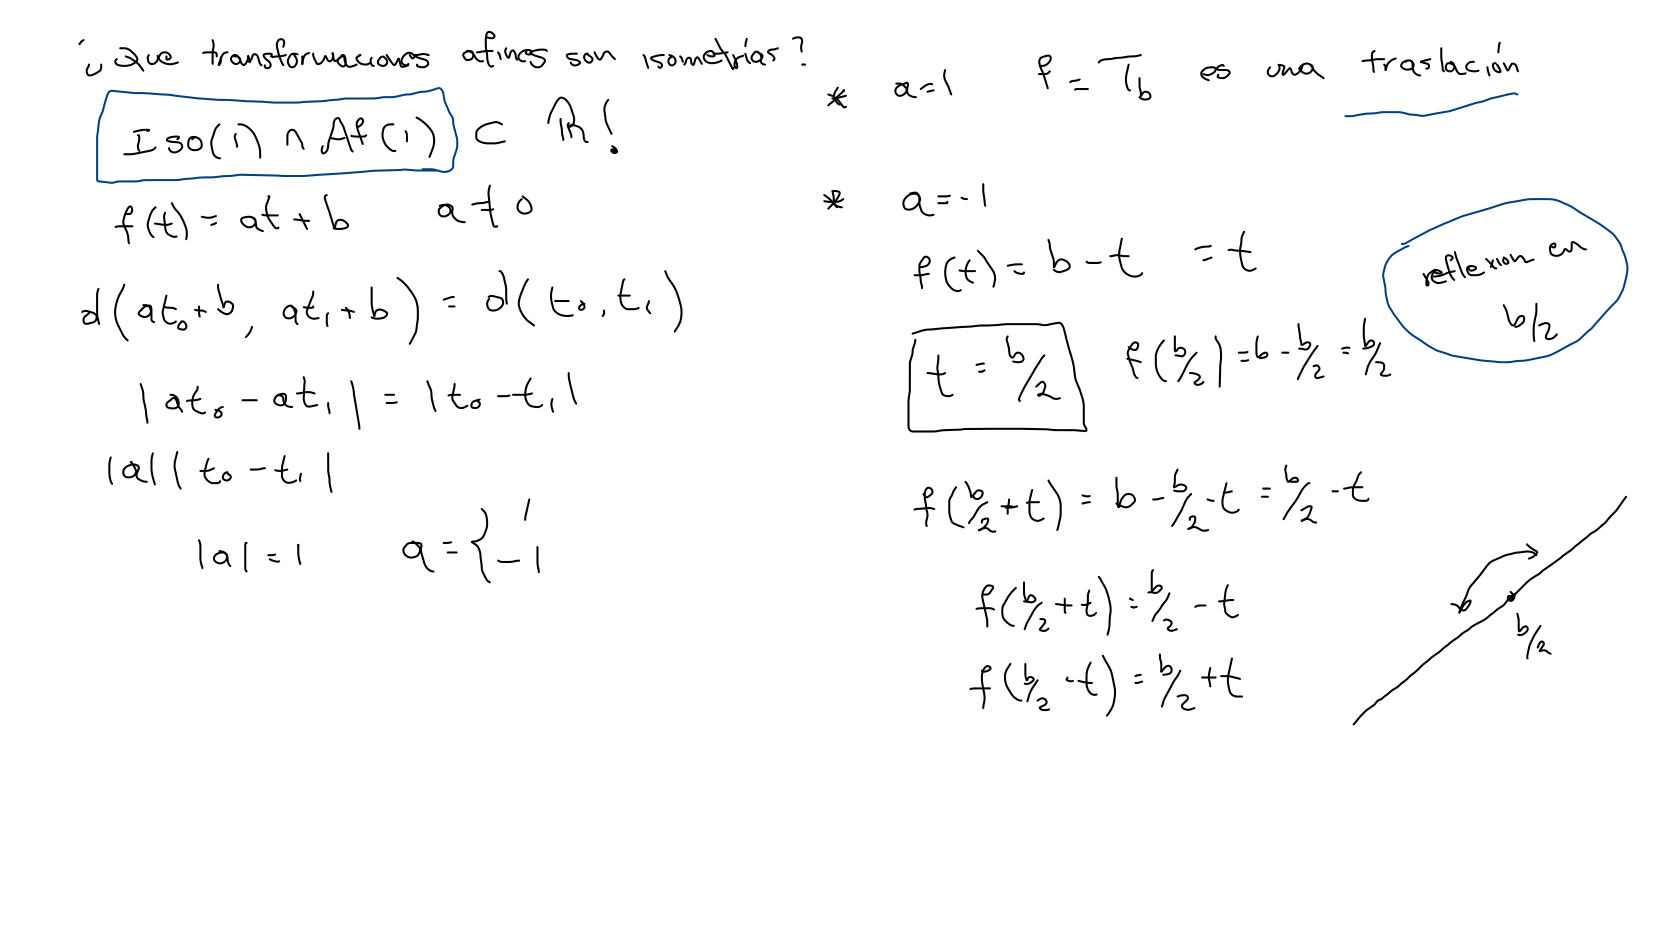 ¿Que transformaciones afines son isometrías?
Iso(1) ∩ Af(1) ⊂ ℝ!
f(t) = at + b   a ≠ 0
d(at₀+b, at₁+b) = d(t₀, t₁)
|at₀ - at₁| = |t₀ - t₁|
|a| |t₀ - t₁|
|a| = 1   a = { 1
-1
* a=1   f = T_b es una traslación
* a=-1
f(t) = b - t = t
reflexion en
b/2
t = b/2   f(b/2) = b - b/2 = b/2
f(b/2 + t) = b - b/2 - t = b/2 - t
f(b/2 + t) = b/2 - t
f(b/2 - t) = b/2 + t
b/2